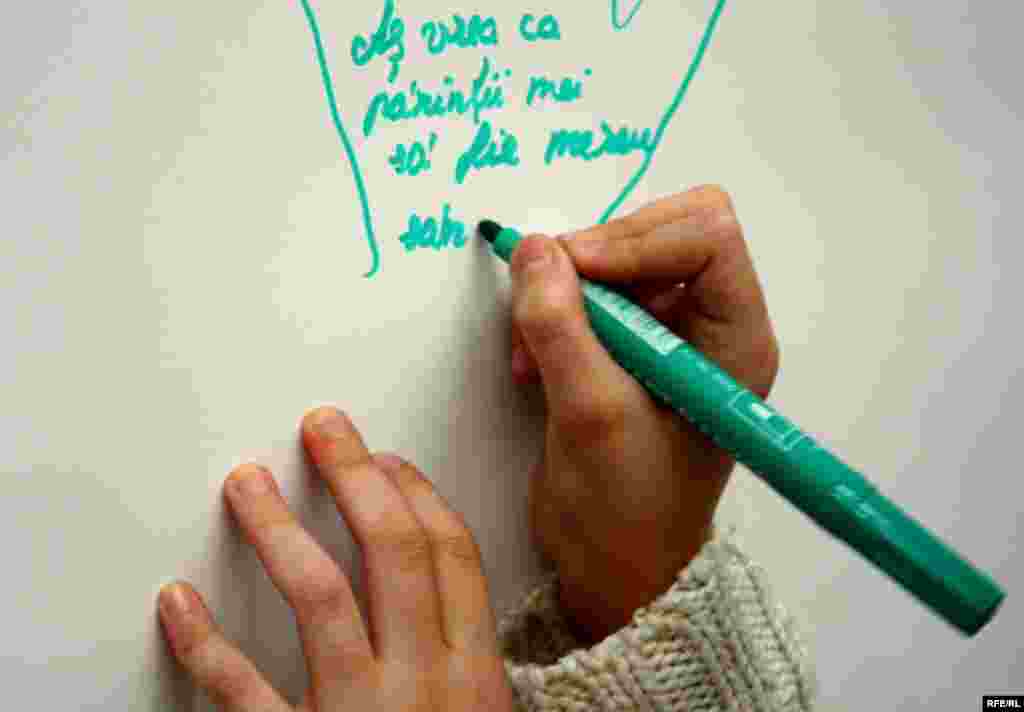 Aș vrea ca
părinții mei
să fie mereu
săn
RFE/RL